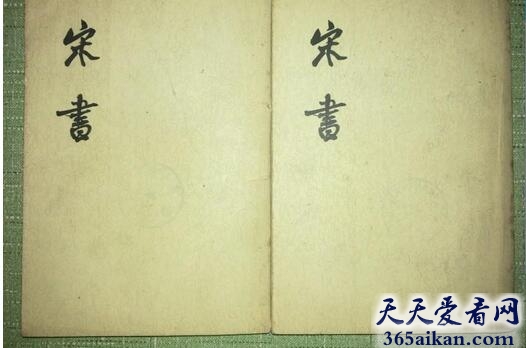 宋書
宋書
天天爱看网
365aikan.com